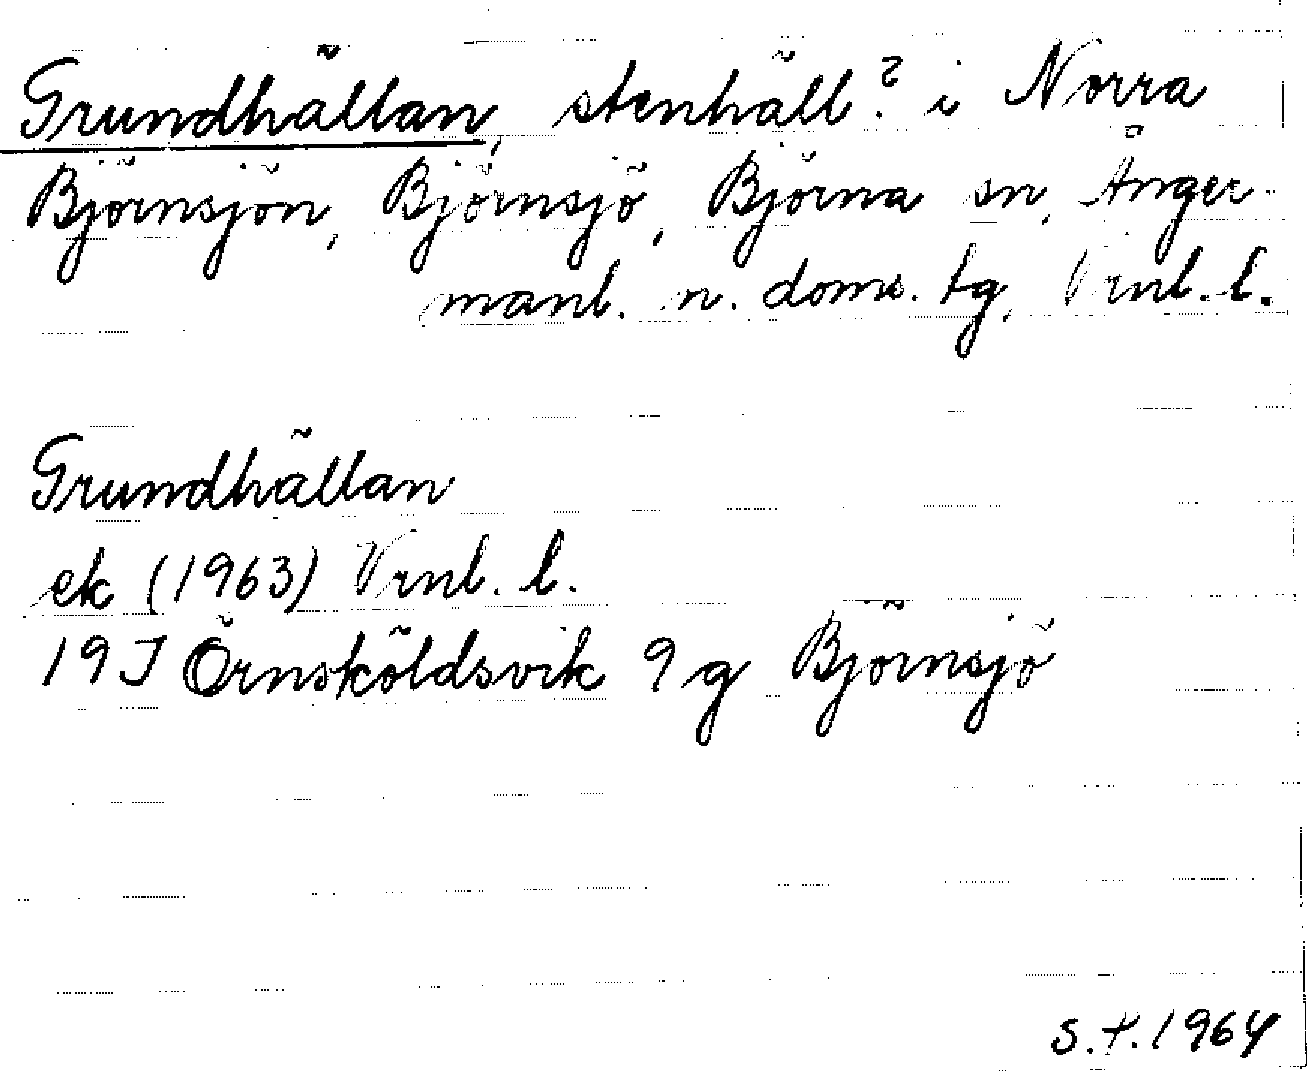 Grundhällan, stenhäll? i Norra
Björnsjön, Björnsjö, Björna sn, Ånger-
manl. n. doms. tg, Vrnl. l.
Grundhällan
ek (1963) Vrnl. l.
19 J Örnsköldsvik 9 g Björnsjö
S.t. 1964